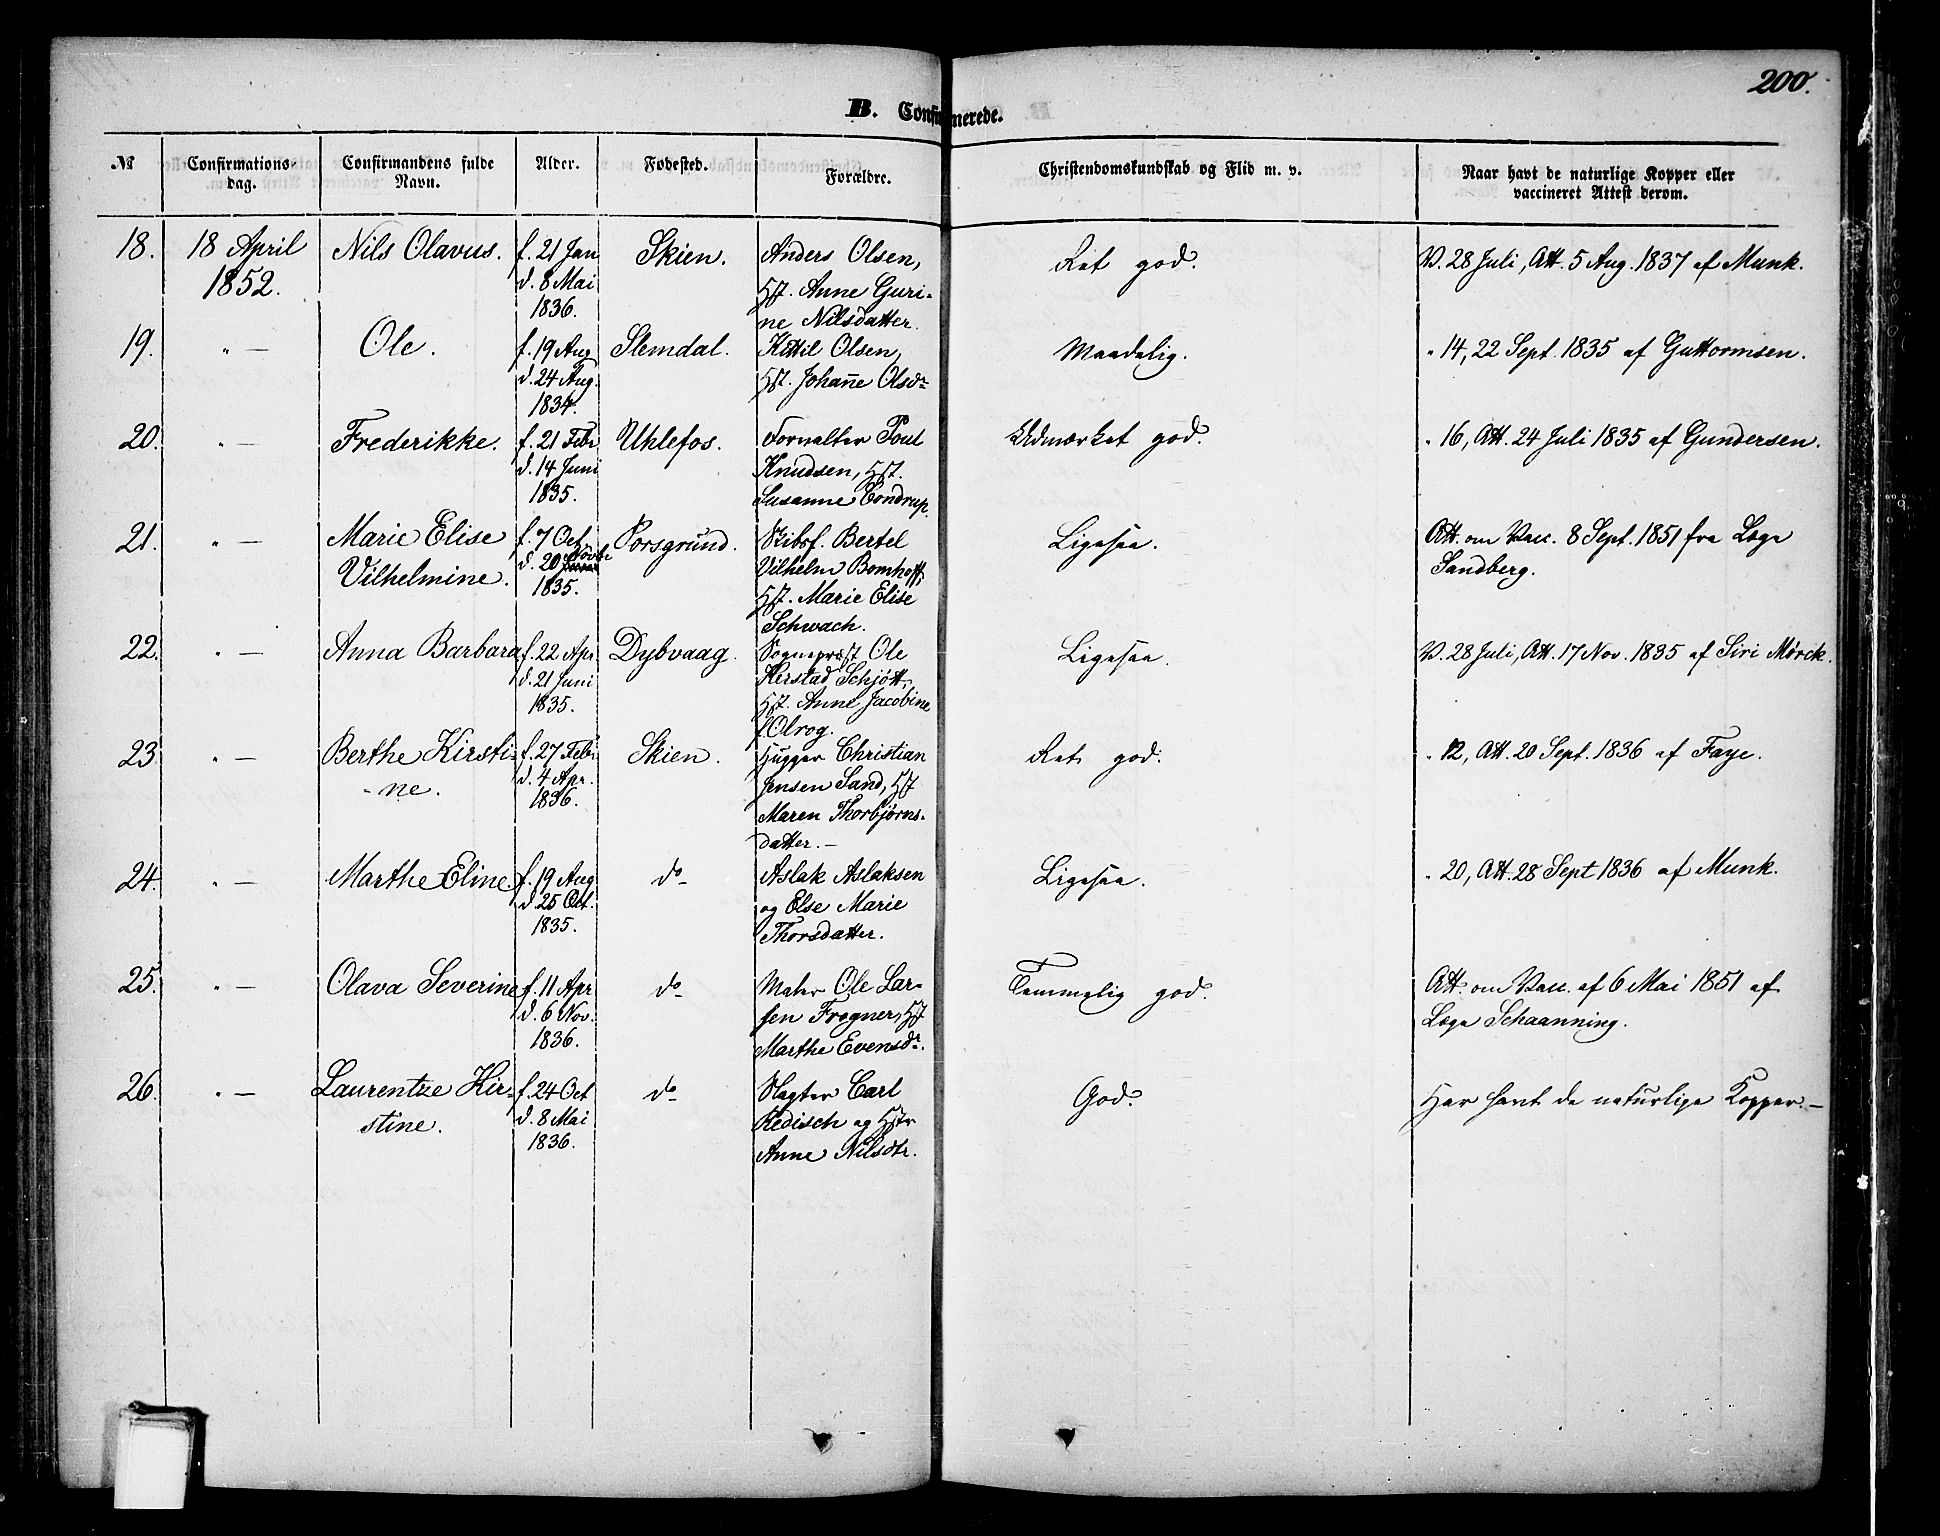 200.
B. Confirmerede.
№
Confirmations-
dag.
Confirmandens fulde
Navn.
Alder.
Fødested.
Forældre.
Christendomskundskab og Flid m. v.
Naar havt de naturlige Kopper eller
vaccineret Attest derom.
18.
18 April
1852.
Nils Olavus.
f. 21 Jan
d. 8 Mai
1836.
Skien.
Anders Olsen,
Hst. Anne Guri-
ne Nilsdatter.
Ret god.
V. 28 Juli, Att. 5 Aug. 1837 af Munk.
19.
" —
Ole.
f. 19 Aug
d. 24 Aug.
1834.
Slemdal.
Kittil Olsen,
Hst. Johanne Olsdr
Maadelig.
" 14, 22 Sept. 1835 af Guttormsen.
20.
" —
Frederikke.
f. 21 Febr
d. 14 Juni
1835.
Uhlefos.
Forvalter Poul
Knudsen, Hst.
Susanne Condrup.
Udmærket god.
" 16, Att. 24 Juli 1835 af Gundersen.
21.
" —
Marie Elise
Vilhelmine.
f. 7 Oct.
d. 20 Novbr
1835.
Porsgrund.
Skibsf. Bertel
Vilhelm Bomhoff,
Hst. Marie Elise
Schwach.
Ligesaa.
Att. om Vacc. 8 Sept. 1851 fra Læge
Sandberg.
22.
" —
Anna Barbara
f. 22 Apr.
d. 21 Juni
1835.
Dybvaag.
Sognepræst Ole
Herstad Schjøtt,
Hst. Anne Jacobine
f. Olrog.
Ligesaa.
V. 28 Juli, Att. 17 Nov. 1835 af Siri Mørck.
23
" —
Berthe Kirsti-
- ne.
f. 27 Febr
d. 4 Apr.
1836.
Skien.
Hugger Christian
Jensen Sand, Hst
Maren Thorbjørns-
datter. —
Ret god.
" 12, Att. 20 Sept. 1836 af Faye.
24.
" —
Marthe Eline.
f. 19 Aug
d. 25 Oct.
1835.
do
Aslak Aslaksen
og Else Marie
Thorsdatter.
Ligesaa.
" 20, Att. 28 Sept 1836 af Munk.
25.
" —
Olava Severine
f. 11 Apr
d. 6 Nov.
1836.
do
Maler Ole Lar-
sen Frogner, Hst
Marthe Evensdr.
Temmelig god.
Att. om Vacc. af 6 Mai 1851 af
Læge Schaanning.
26.
" —
Laurentze Kir-
stine.
f. 24 Oct
d. 8 Mai
1836.
do
Slagter Carl
Redisch og Hstr
Anne Nilsdtr.
God.
Har havt de naturlige Kopper. —